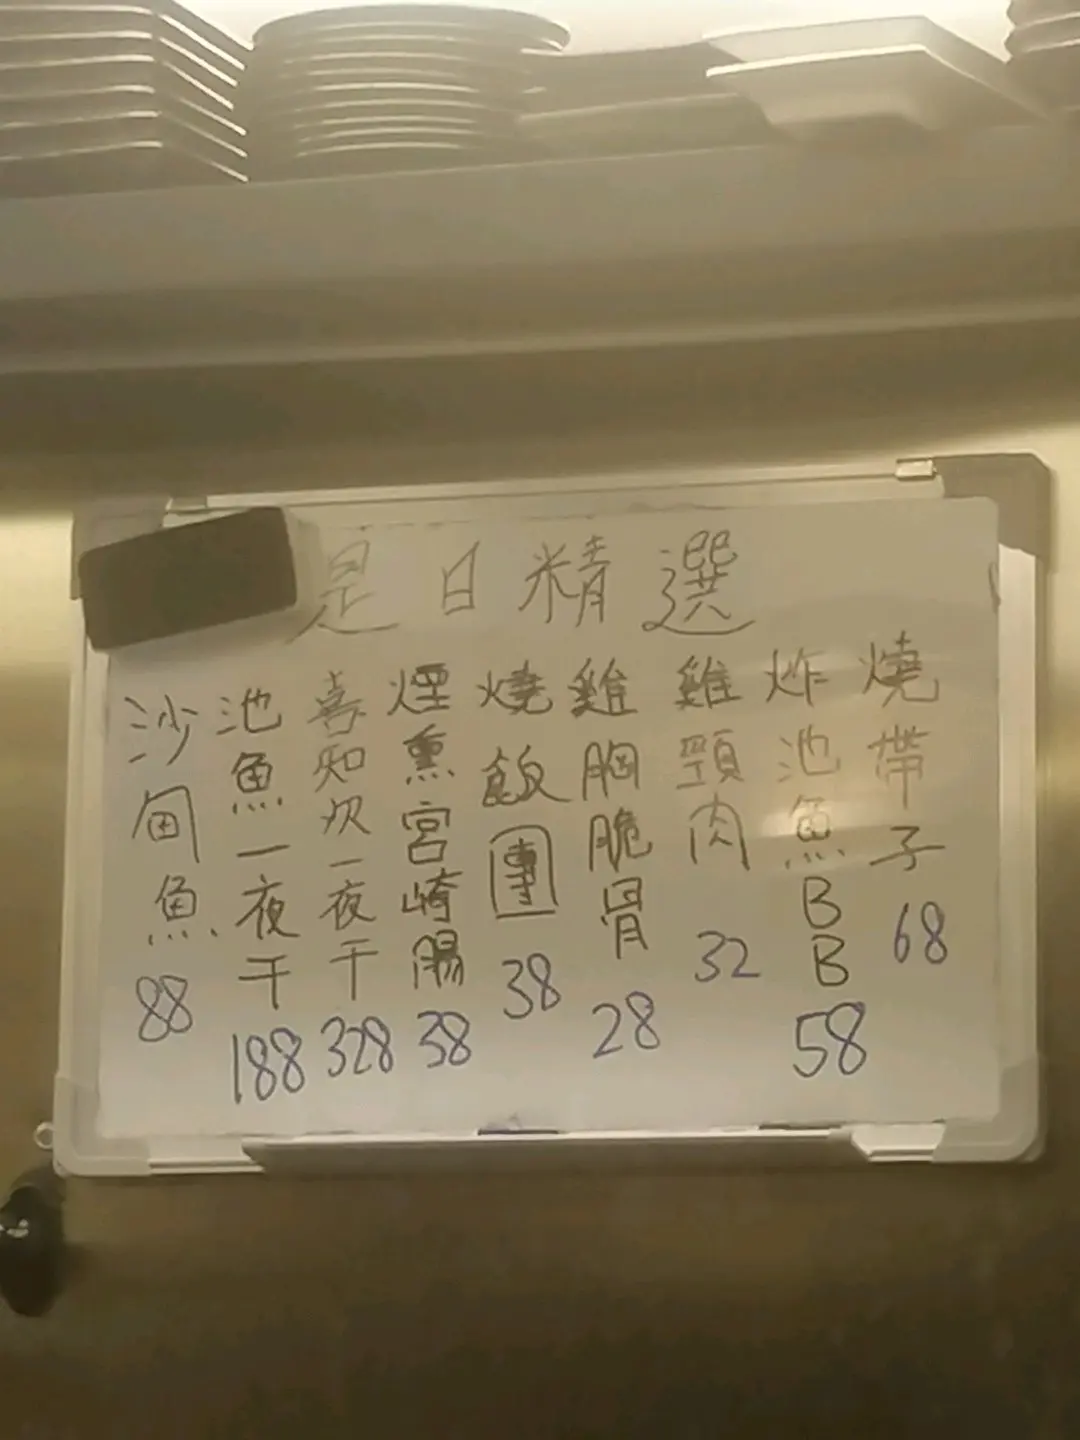 是日精選
燒帶子 68
炸池魚BB 58
雞頸肉 32
雞胸脆骨 28
燒飯團 38
煙熏宮崎腸 38
喜知次一夜干 328
池魚一夜干 188
沙甸魚 88